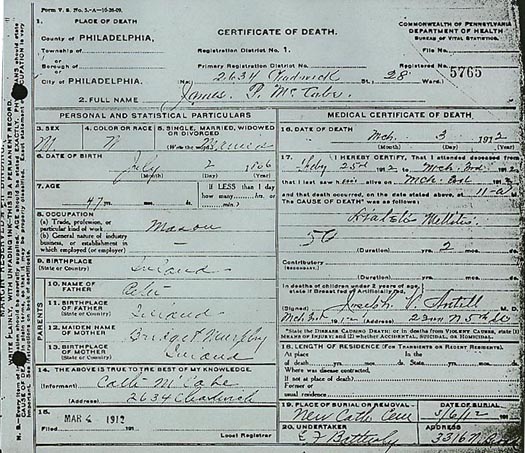 Form V. S. No. 5.-A-10-26-09.
1. PLACE OF DEATH
County of PHILADELPHIA,
Township of
or
Borough of
or
City of PHILADELPHIA,
CERTIFICATE OF DEATH.
Registration District No. 1.
Primary Registration District No.
(No. 2634 Chadwick St., 28 Ward.)
COMMONWEALTH OF PENNSYLVANIA
DEPARTMENT OF HEALTH
BUREAU OF VITAL STATISTICS.
File No.
Registered No. 5765
2. FULL NAME James P. McCabe
PERSONAL AND STATISTICAL PARTICULARS
3. SEX M
4. COLOR OR RACE
5. SINGLE, MARRIED, WIDOWED
OR DIVORCED
(Write the word) Married
6. DATE OF BIRTH
July 2
(Month) (Day) (Year)
7. AGE
47 yrs. mos. ds.
If LESS than 1 day
how many hrs. or
min.?
8. OCCUPATION
(a) Trade, profession, or
particular kind of work Mason
(b) General nature of industry
business, or establishment in
which employed (or employer)
9. BIRTHPLACE
(State or Country) Ireland
PARENTS
10. NAME OF
FATHER Peter
11. BIRTHPLACE
OF FATHER
(State or Country) Ireland
12. MAIDEN NAME
OF MOTHER Bridget Murphy
13. BIRTHPLACE
OF MOTHER
(State or Country) Ireland
14. THE ABOVE IS TRUE TO THE BEST OF MY KNOWLEDGE.
(Informant) Cath McCabe
2634 Chadwick
15.
Filed MAR 4 1912 191
Local Registrar
MEDICAL CERTIFICATE OF DEATH
16. DATE OF DEATH
Mch. 3 1912
(Month) (Day) (Year)
17. I HEREBY CERTIFY, That I attended deceased from
Feby 25th 1912 to Mch 3rd 1912
that I last saw him alive on Mch 3rd 1912
and that death occurred, on the date stated above, at 11-a M.
The CAUSE OF DEATH* was as follows:
Diabetes Mellitus
50
(Duration) yrs. 2 mos. ds.
Contributory
(SECONDARY)
(Duration) yrs. mos. ds.
In deaths of children under 2 years of age,
state if Breast fed or Artificially fed,
(Signed) Joseph V. M. D.
Mch 3rd 1912 N 5th St
*State the DISEASE CAUSING DEATH; or in deaths from VIOLENT CAUSES, state (1)
MEANS OF INJURY; and (2) whether ACCIDENTAL, SUICIDAL, or HOMICIDAL.
18. LENGTH OF RESIDENCE (FOR TRANSIENTS OR RECENT RESIDENTS).
At place In the
of death yrs. mos. ds. State yrs. mos. ds.
Where was disease contracted,
if not at place of death?
Former or
usual residence
19. PLACE OF BURIAL OR REMOVAL
New Cath Cem
DATE OF BURIAL
3/6/12 191
20. UNDERTAKER
ADDRESS
3316 N